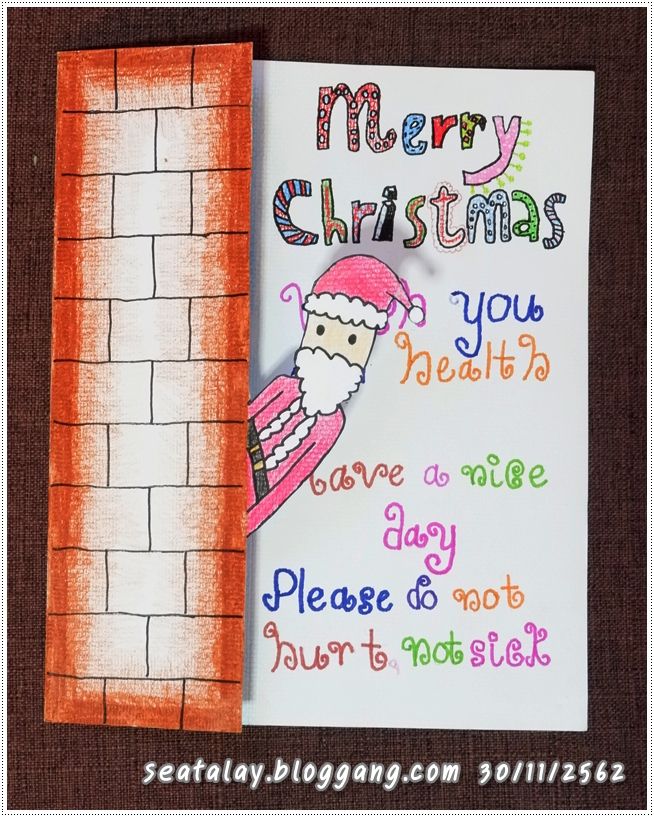 Merry
Christmas
you
health
have a nice
day
Please do not
hurt, not sick
seatalay.bloggang.com 30/11/2562